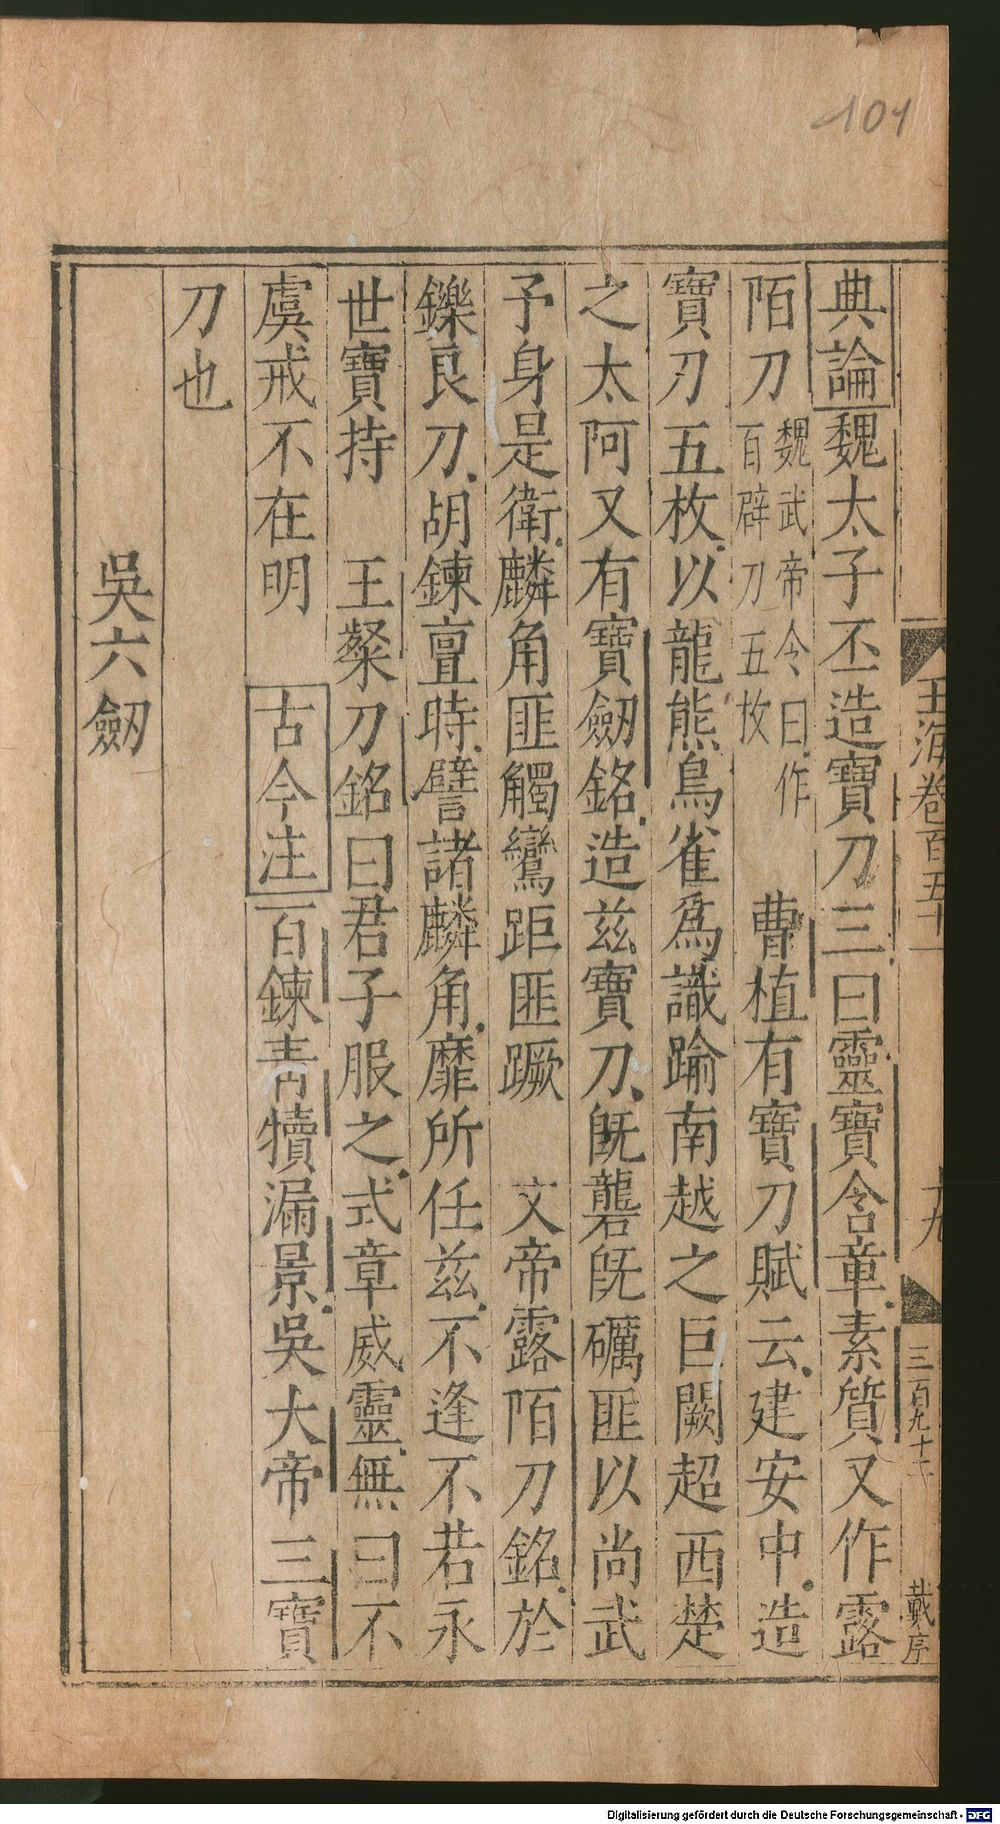 101
玉海卷百五十一
十九
三百九十二
戴序
典論魏太子丕造寶刀三曰靈寶含章素質又作露
陌刀魏武帝令曰作百辟刀五枚 曹植有寶刀賦云建安中造
寶刀五枚以龍熊鳥雀爲識踰南越之巨闕超西楚
之太阿又有寶劒銘造兹寶刀旣礱旣礪匪以尚武
予身是衛麟角匪觸鸞距匪蹶 文帝露陌刀銘於
鑠良刀胡鍊亶時譬諸麟角靡所任兹不逢不若永
世寶持 王粲刀銘曰君子服之式章威靈無曰不
虞戒不在明 古今注百鍊青犢漏景吳大帝三寶
刀也
吳六劒
Digitalisierung gefördert durch die Deutsche Forschungsgemeinschaft - DFG